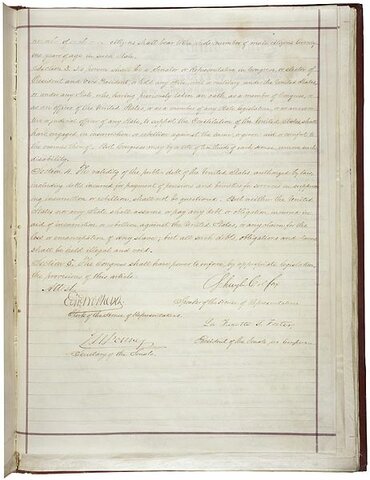 citizens shall bear to the whole number of male citizens twenty
one years of age in such State.
Section 3. No person shall be a Senator or Representative in Congress, or elector of
President and Vice President, or hold any office, civil or military, under the United States,
or under any State, who, having previously taken an oath, as a member of Congress, or
as an officer of the United States, or as a member of any State legislature, or as an execu-
tive or judicial officer of any State, to support the Constitution of the United States, shall
have engaged in insurrection or rebellion against the same, or given aid or comfort to
the enemies thereof. But Congress may by a vote of two-thirds of each House, remove such
disability.
Section 4. The validity of the public debt of the United States, authorized by law,
including debts incurred for payment of pensions and bounties for services in suppress-
ing insurrection or rebellion, shall not be questioned. But neither the United
States nor any State shall assume or pay any debt or obligation incurred in
aid of insurrection or rebellion against the United States, or any claim for the
loss or emancipation of any slave; but all such debts, obligations and claims
shall be held illegal and void.
Section 5. The Congress shall have power to enforce, by appropriate legislation,
the provisions of this article.
Attest.
Schuyler Colfax
Speaker of the House of Representatives.
Clerk of the House of Representatives.
La Fayette S. Foster
President of the Senate pro tempore.
Secretary of the Senate.